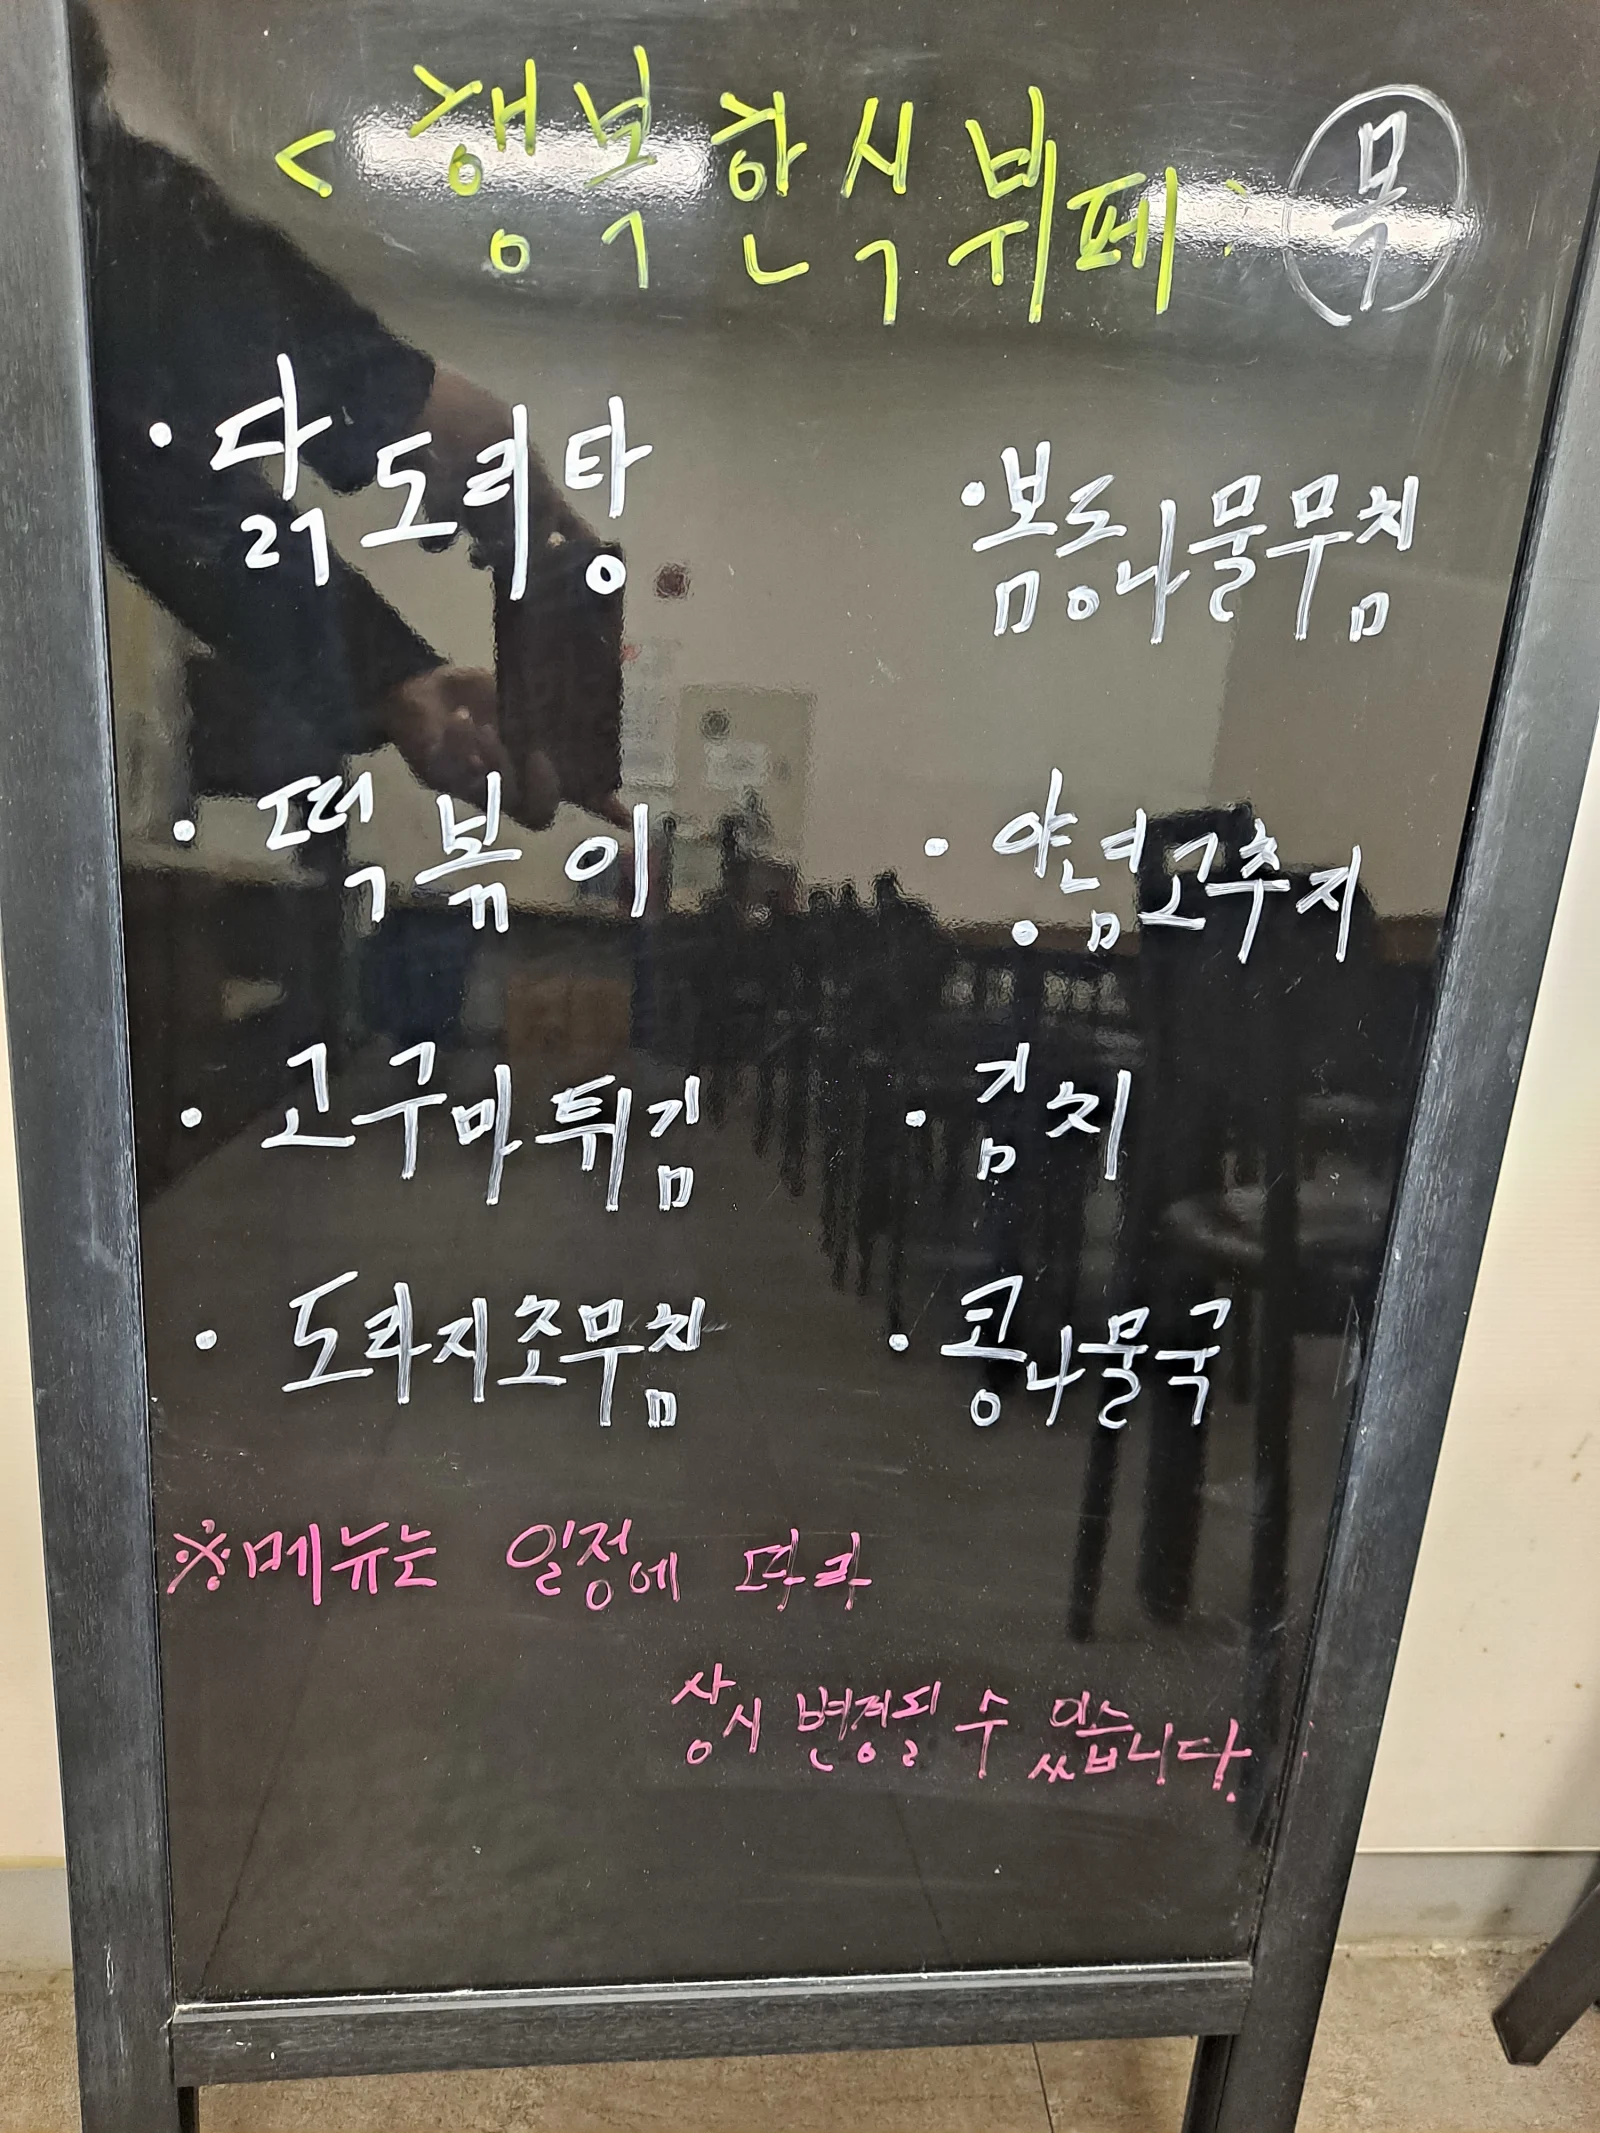 <행복한식뷔페> 목
· 닭도리탕
· 봄동나물무침
· 떡볶이
· 양념고추지
· 고구마튀김
· 김치
· 도라지초무침
· 콩나물국
※메뉴는 일정에 따라
상시 변경될 수 있습니다.